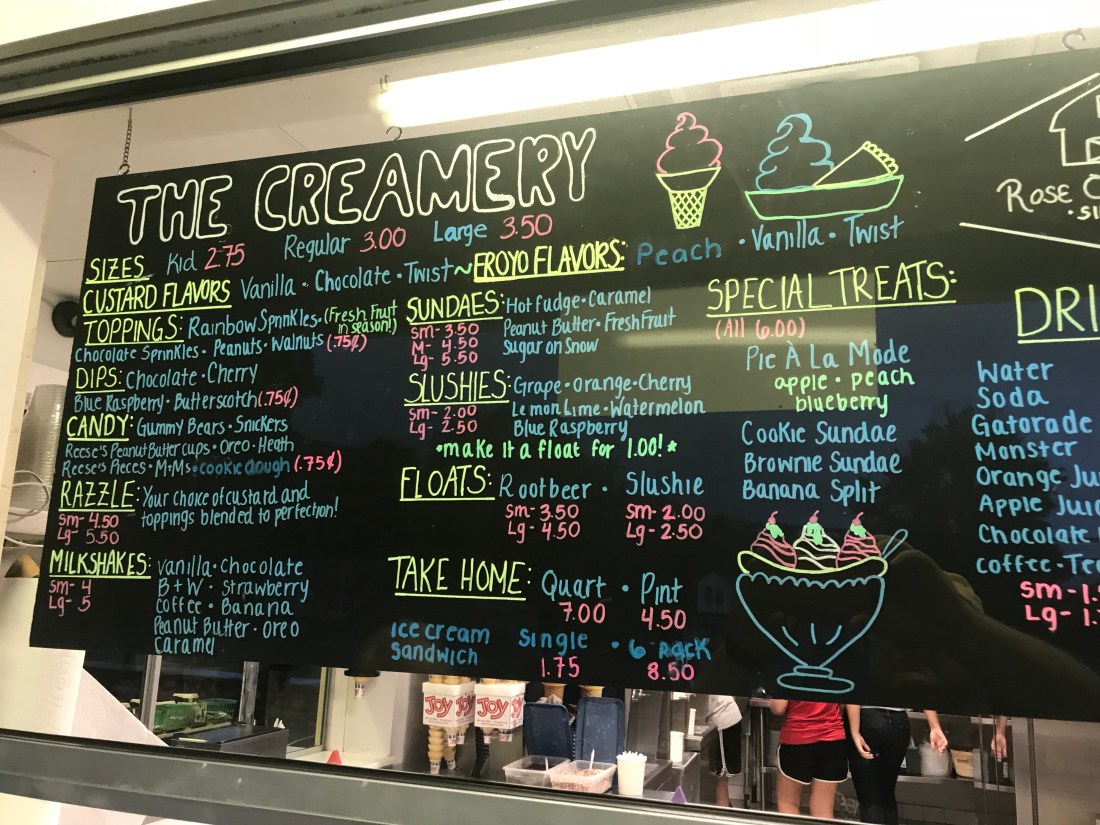 THE CREAMERY
SIZES Kid 2.75 Regular 3.00 Large 3.50
CUSTARD FLAVORS Vanilla • Chocolate • Twist ~ FROYO FLAVORS: Peach • Vanilla • Twist
TOPPINGS: Rainbow Sprinkles • (Fresh Fruit in season!)
Chocolate Sprinkles • Peanuts • Walnuts (.75¢)
DIPS: Chocolate • Cherry
Blue Raspberry • Butterscotch (.75¢)
CANDY: Gummy Bears • Snickers
Reese's Peanut Butter cups • Oreo • Heath
Reese's Pieces • M+Ms • cookie dough (.75¢)
RAZZLE: Your choice of custard and
toppings blended to perfection!
Sm- 4.50
Lg- 5.50
MILKSHAKES: vanilla • chocolate
B+W • Strawberry
coffee • Banana
Peanut Butter • oreo
caramel
Sm- 4
Lg- 5
SUNDAES: Hot fudge • Caramel
Peanut Butter • Fresh Fruit
Sugar on Snow
Sm- 3.50
M- 4.50
Lg- 5.50
SLUSHIES: Grape • orange • Cherry
Lemon Lime • Watermelon
Blue Raspberry
Sm- 2.00
Lg- 2.50
*make it a float for 1.00! *
FLOATS: Rootbeer • Slushie
Sm- 3.50 Sm- 2.00
Lg- 4.50 Lg- 2.50
TAKE HOME: Quart • Pint
7.00 4.50
ice cream sandwich Single • 6 pack
1.75 8.50
SPECIAL TREATS:
(All 6.00)
Pie À La Mode
apple • peach
blueberry
Cookie Sundae
Brownie Sundae
Banana Split
Rose
DRI
Water
Soda
Gatorade
Monster
Orange Jui
Apple Juic
Chocolate
coffee • Te
Sm - 1.
Lg - 1.
JOY JOY JOY JOY